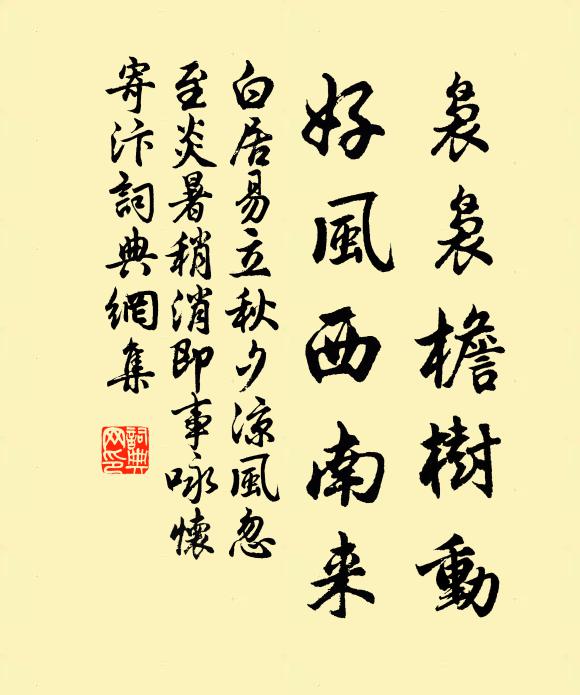 袅袅檐樹動
好風西南来
白居易立秋夕凉風忽
至炎暑稍消即事咏懷
寄汴詞典網集
詞典
网印